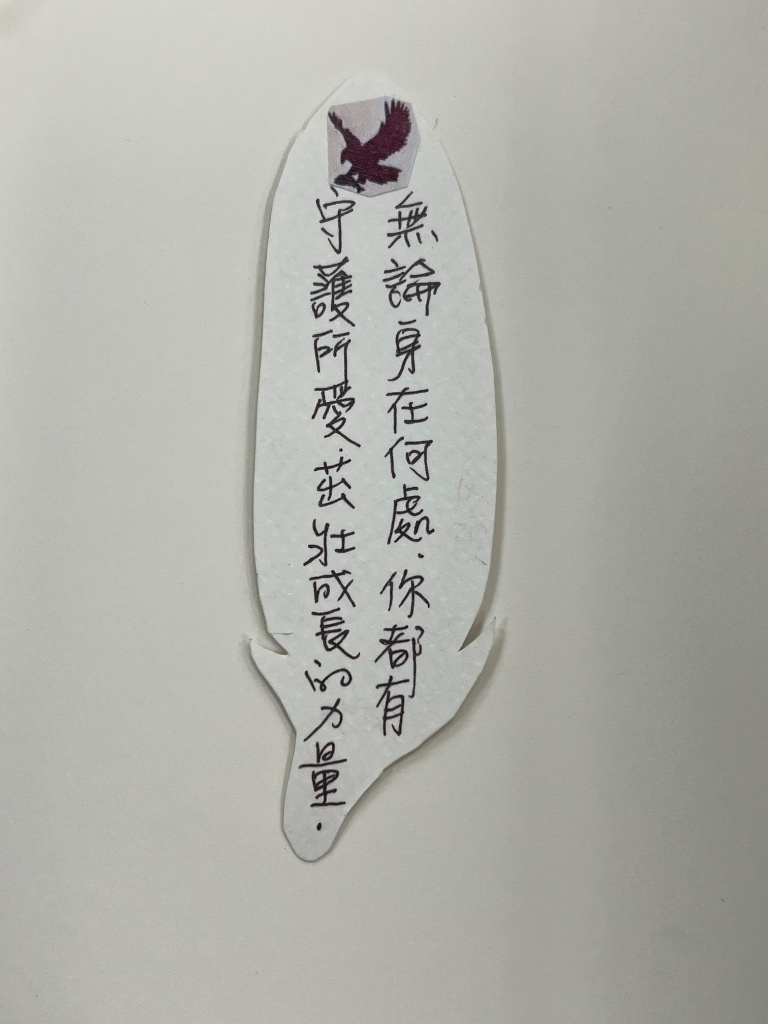 無論身在何處.你都有
守護所愛.茁壯成長的力量.